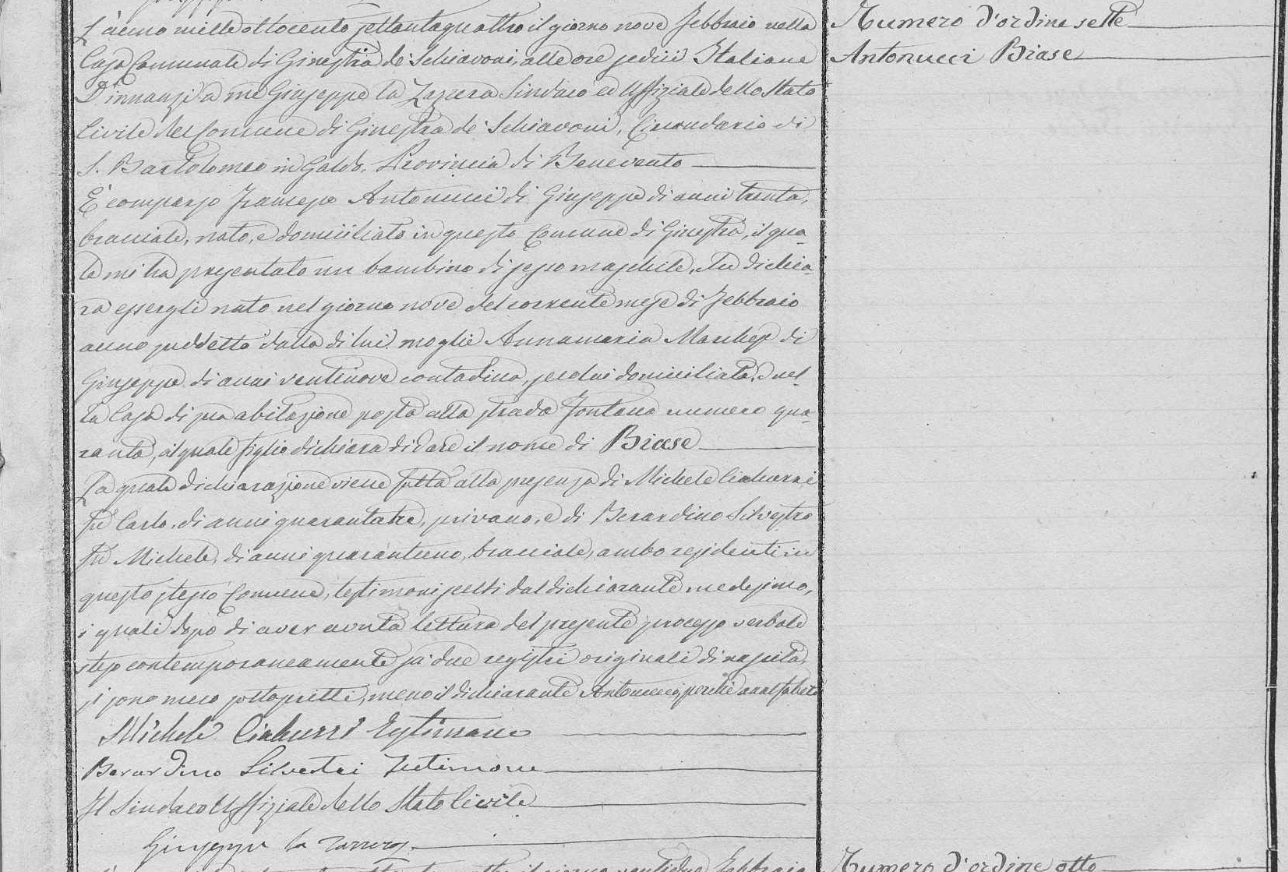 L'anno mille ottocento settantaquattro il giorno nove Febbraio nella
Casa Comunale di Ginestra de' Schiavoni, alle ore sedici Italiane
D'innanzi a me Giuseppe la Sindaco ed Uffiziale dello Stato
Civile del Comune di Ginestra de' Schiavoni, Circondario di
S. Bartolomeo in Galdo, Provincia di Benevento
È comparso Antonucci di Giuseppe di anni trenta,
bracciale, nato, e domiciliato in questo Comune di Ginestra, il qua-
le mi ha presentato un bambino di sesso maschile, che dichia-
ra essergli nato nel giorno nove del corrente mese di Febbraio
anno suddetto dalla di lui moglie Annamaria di
Giuseppe di anni ventinove contadina, seco lui domiciliata, e nel-
la Casa di sua abitazione posta alla strada Fontana numero qua-
ranta, al quale figlio dichiara di dare il nome di Biase
La quale dichiarazione viene fatta alla presenza di Michele Ciaburri
fu Carlo, di anni quarantatre, e di Berardino Silvestro
fu Michele, di anni quarantuno, bracciale, ambo residenti in
questo stesso Comune, testimoni scelti dal dichiarante medesimo,
i quali dopo di aver avuta lettura del presente processo verbale
steso contemporaneamente su' due registri originali di nascita,
si sono meco sottoscritti, meno il dichiarante Antonucci, perchè analfabeto
Michele Ciaburri Testimone
Berardino Silvestri Testimone
Il Sindaco Uffiziale dello Stato Civile
Giuseppe la
Numero d'ordine sette
Antonucci Biase
il giorno ventidue Febbraio
Numero d'ordine otto